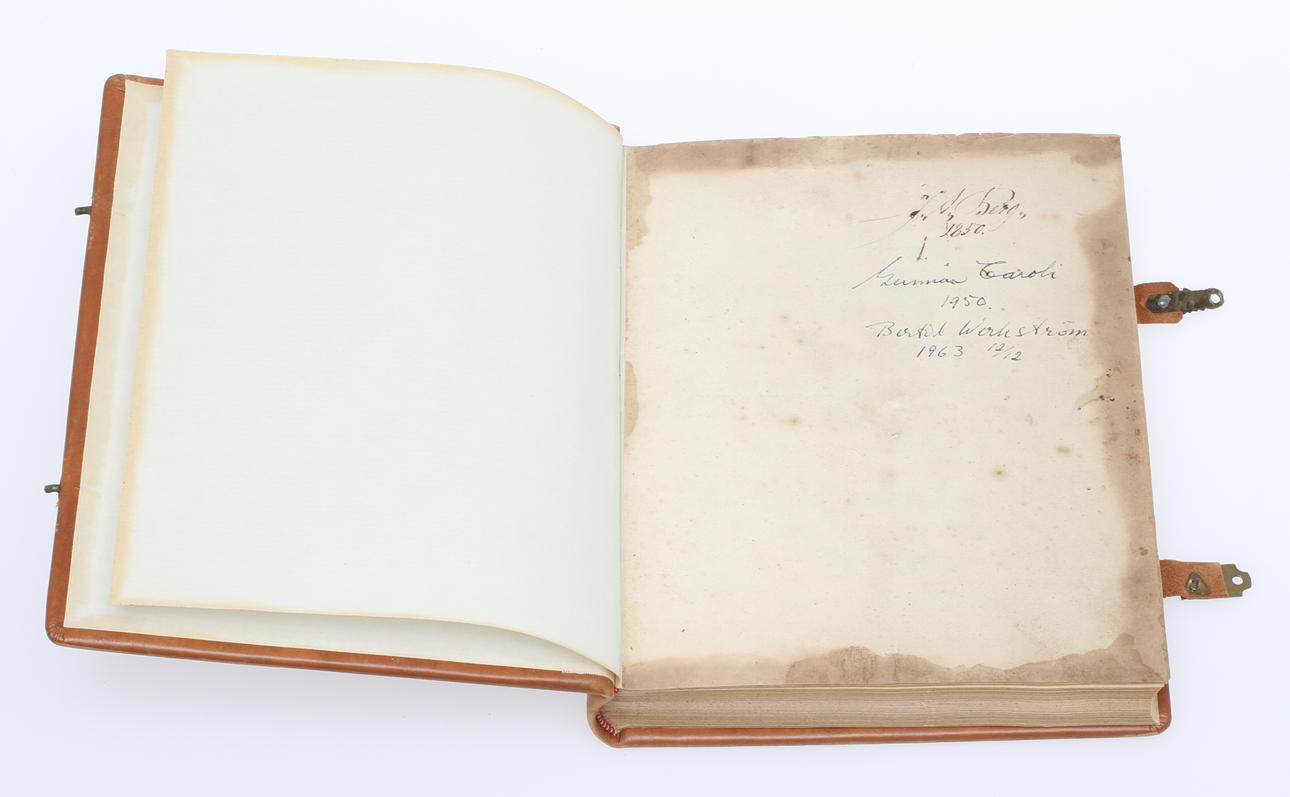 Berg
1850.
Gunnar Caroli
1950.
Bertil Werkström
1963 12/12